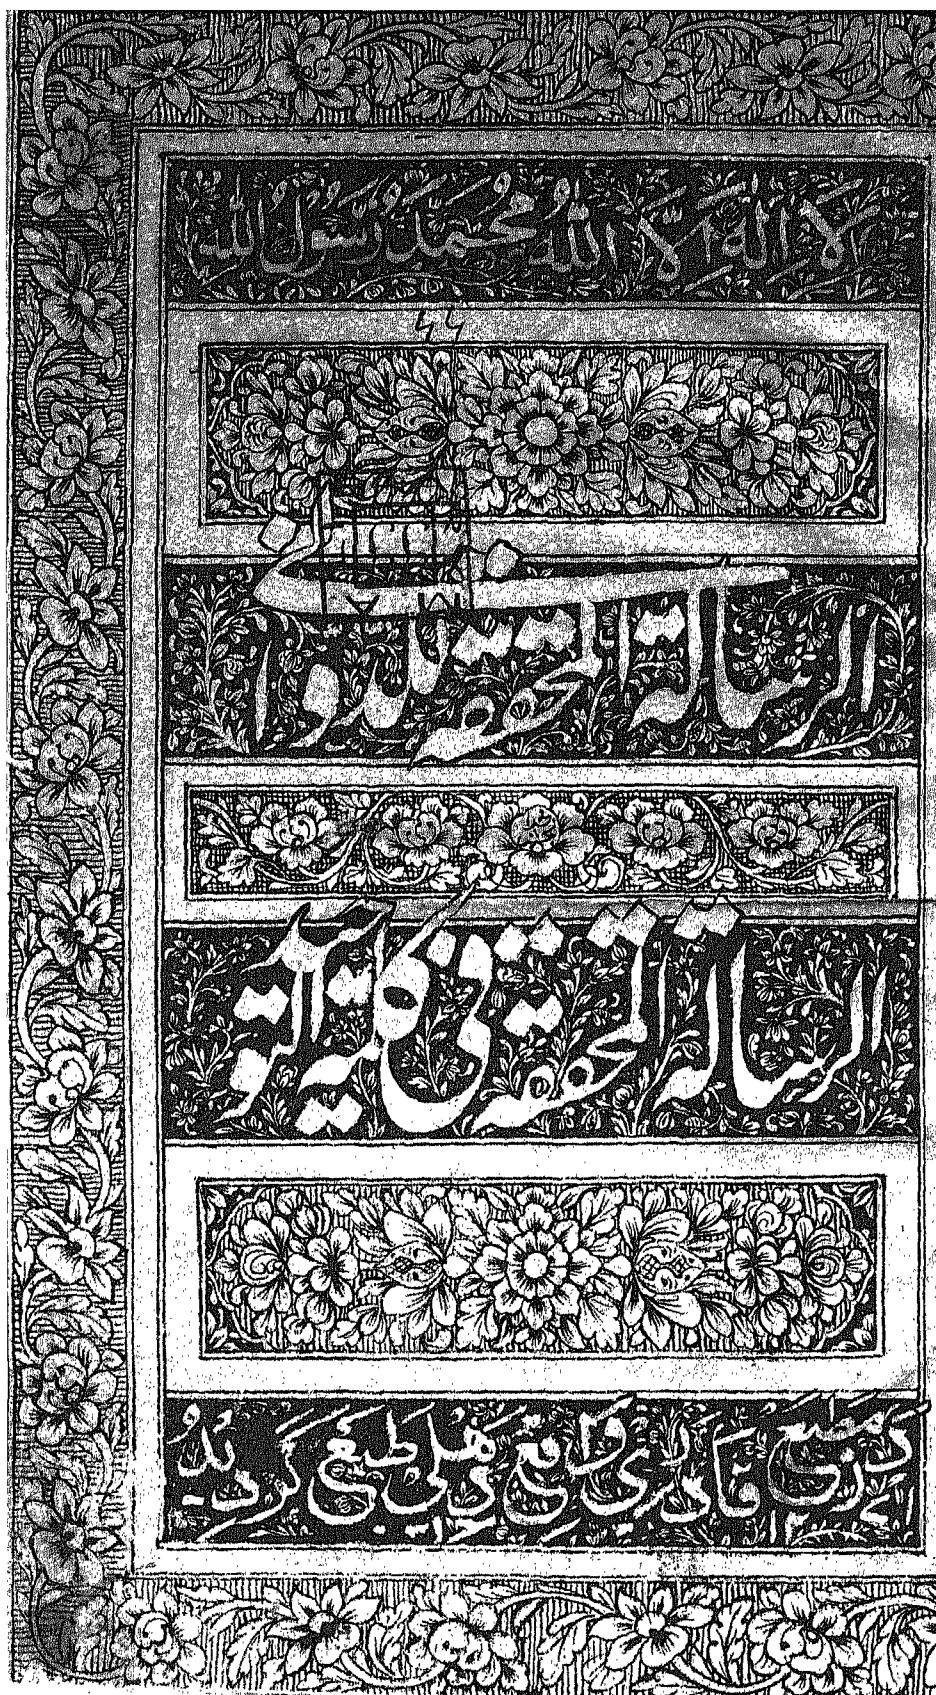 لَا اِلٰهَ اِلَّا اللّٰهُ مُحَمَّدٌ رَّسُوْلُ اللّٰهِ
الرسالة المحققة للدوانی
الرسالة المحققة فی کلمة التوحید
مطبع قادری واقع دهلی طبع گردید